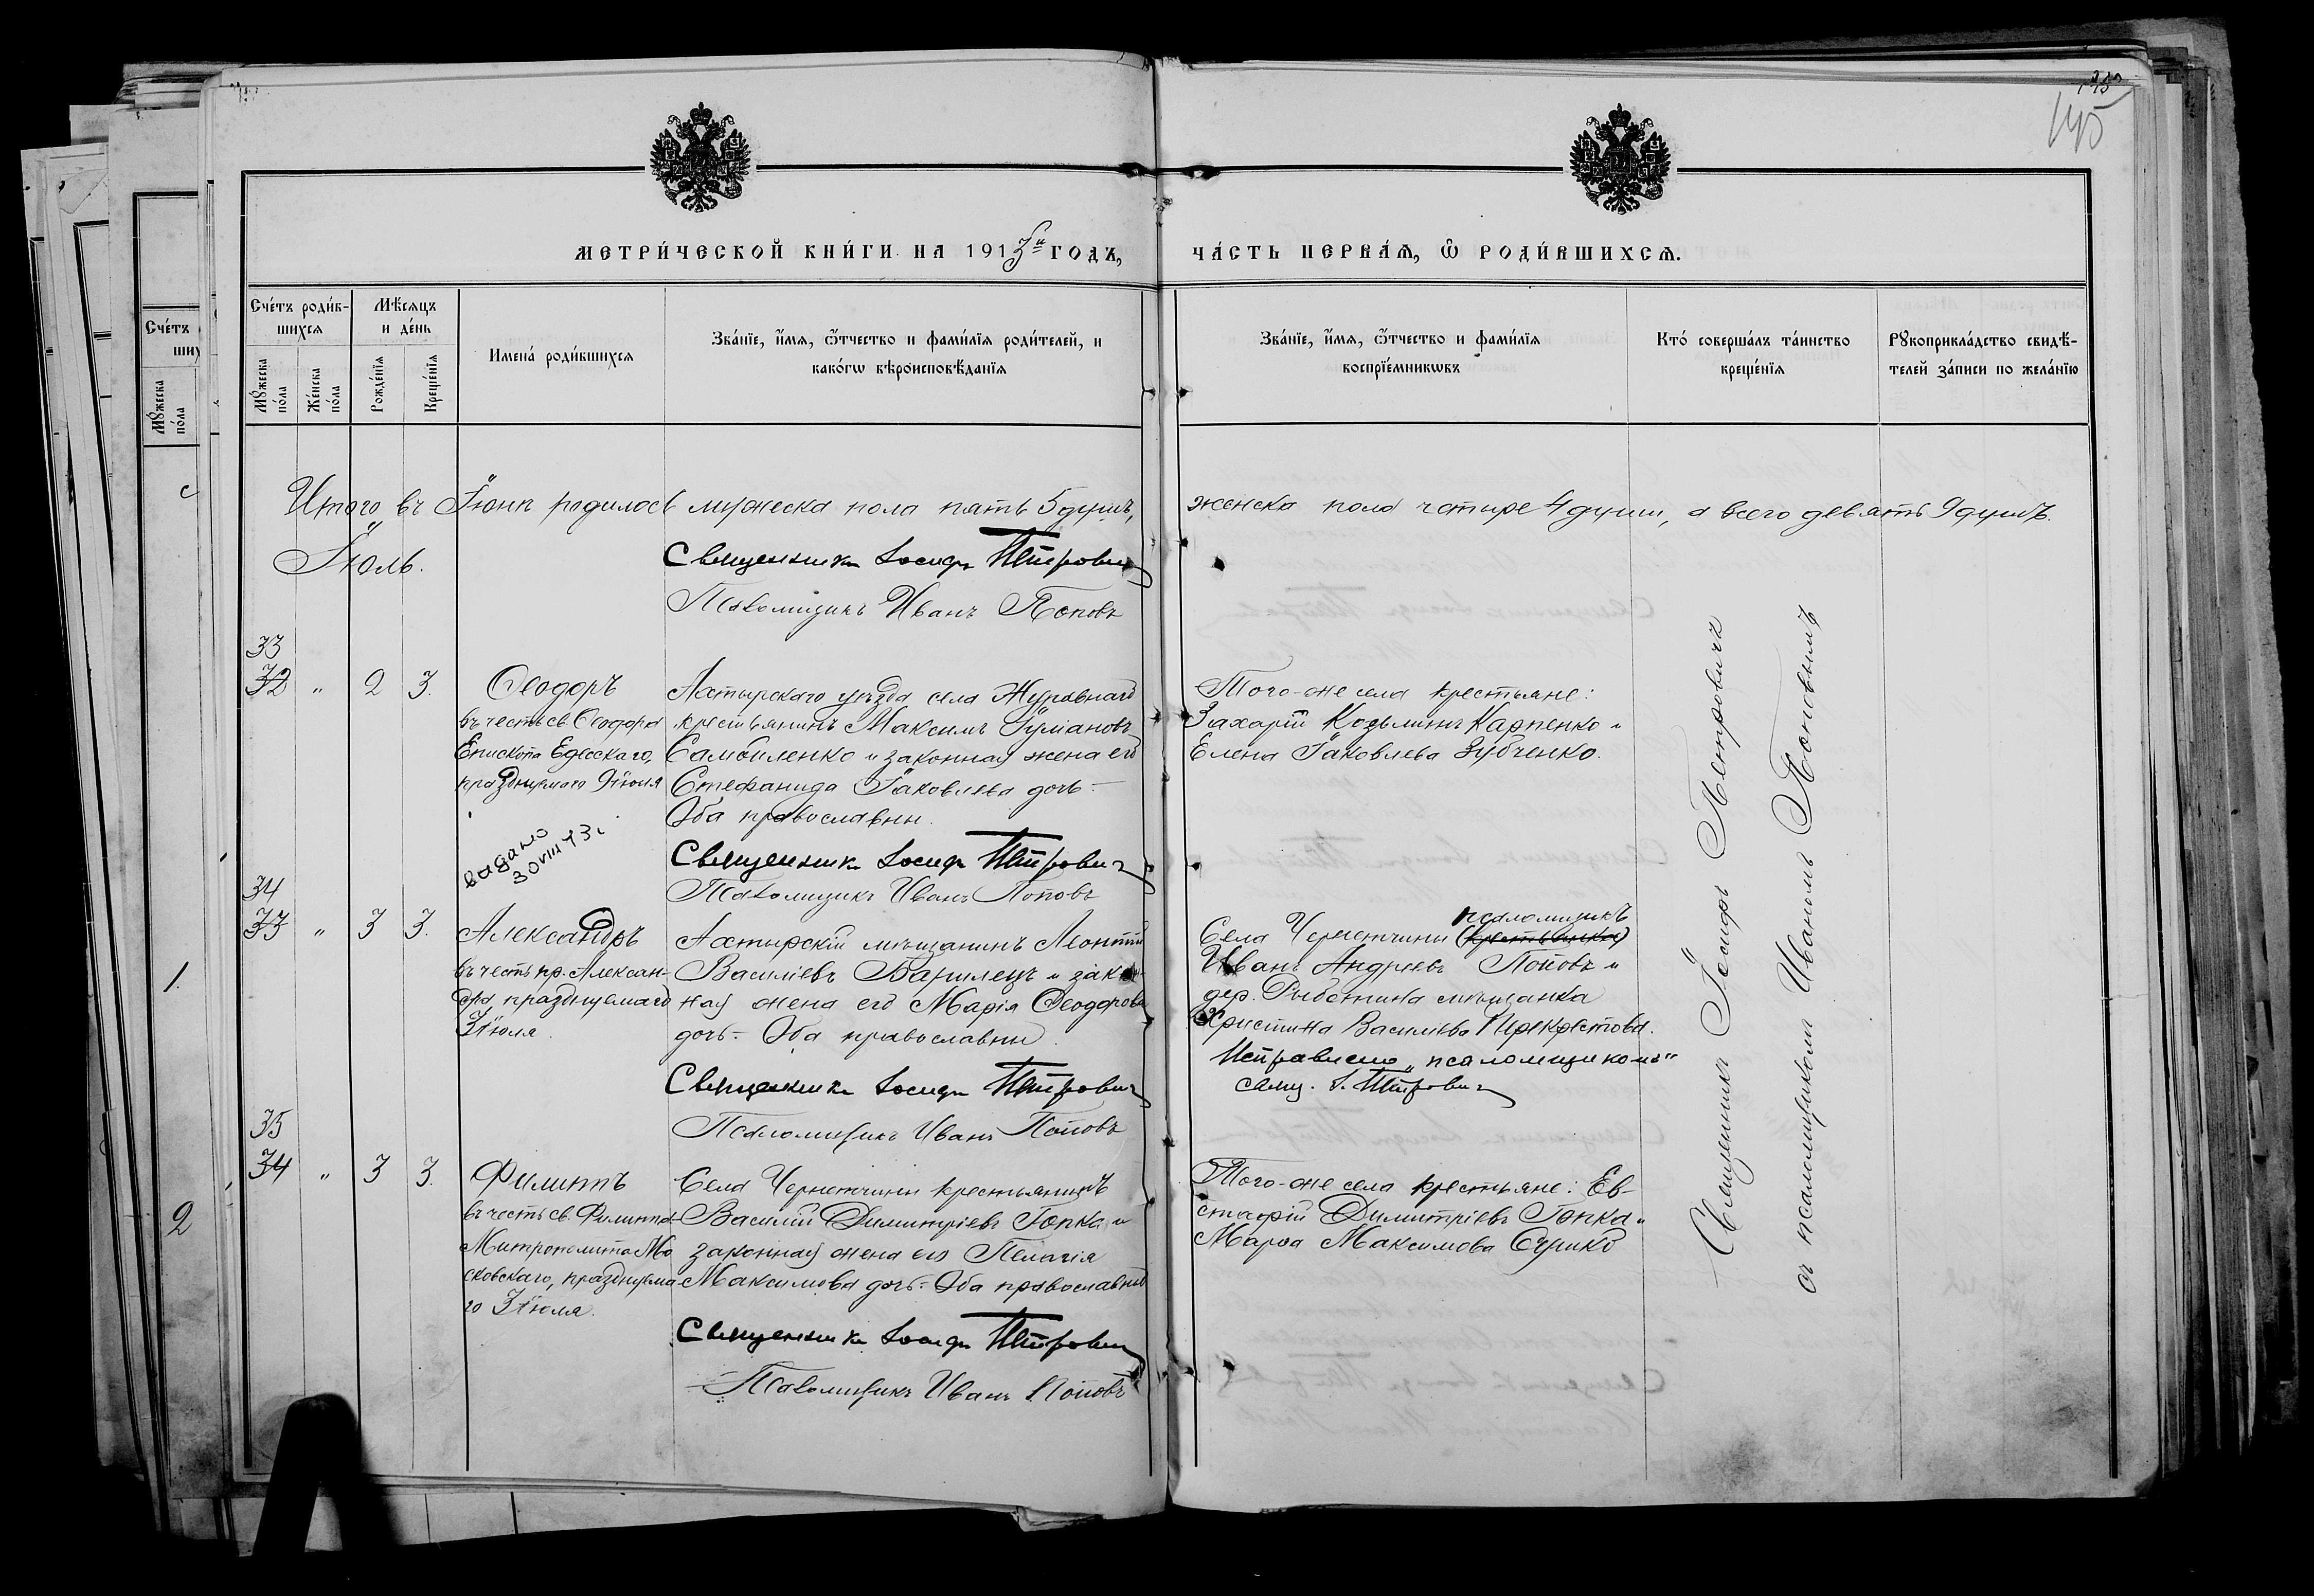 145
МЕТРИ́ЧЕСКОЙ КНИ́ГИ НА 1913й ГОДЪ,
ЧА́СТЬ ПЕРВА́Я, Ѿ РОДИ́ВШИХСЯ.
Сче́тъ роди́в-
шихся
Мѣ́сяцъ
и де́нь
Мꙋ́жеска
по́ла
Же́нска
по́ла
Рожде́нїя
Креще́нїя
Имена́ роди́вшихся
Зва́нїе, и́мя, ѻ́тчество и фами́лїя роди́телей, и
како́гѡ вѣроисповѣ́данїя
Зва́нїе, и́мя, ѻ́тчество и фами́лїя
воспрїе́мникѡвъ
Кто́ соверша́лъ та́инство
креще́нїя
Рꙋкоприкла́дство свидѣ́-
телей за́писи по жела́нїю
Итого въ Іюнѣ родилось мужеска пола пять 5 душъ,
женска пола четыре 4 души, а всего девять 9 душъ.
Іюль.
Священникъ Іосифъ Петровичъ
Псаломщикъ Иванъ Поповъ
33
32 " 2 3.
Ѳеодоръ
въ честь св. Ѳеодора
Епископа Едесскаго,
празднуемаго 9 Іюля
выдано
30 VIII 43 г.
Ахтырскаго уѣзда села Журавнаго
крестьянинъ Максимъ Гуріановъ
Самойленко и законная жена его
Стефанида Іаковлева дочь -
Оба православны.
Священникъ Іосифъ Петровичъ
Псаломщикъ Иванъ Поповъ
Того-же села крестьяне:
Захарій Козьминъ Карпенко и
Елена Іаковлева Зубченко.
34
33 " 3 3.
Александръ
въ честь пр. Алексан-
дра, празднуемаго
3 Іюля.
Ахтырскій мѣщанинъ Леонтій
Василіевъ Барилецъ и закон-
ная жена его Марія Ѳеодорова
дочь - Оба православны.
Священникъ Іосифъ Петровичъ
Псаломщикъ Иванъ Поповъ
псаломщикъ
Села Чернетчины (крестьянин)
Иванъ Андреевъ Поповъ и
дер. Рыботина мѣщанка
Христина Василіева Перекрестова.
Исправлено „псаломщикомъ"
Свящ. І. Петровичъ
35
34 " 3 3.
Филиппъ
въ честь св. Филиппа
Митрополита Мо
сковскаго, празднуема-
го 3 Іюля.
Села Чернетчины крестьянинъ
Василій Димитріевъ Гопка и
законная жена его Пелагія
Максимова дочь - Оба православны
Священникъ Іосифъ Петровичъ
Псаломщикъ Иванъ Поповъ
Того-же села крестьяне: Ев-
стафій Димитріевъ Гопка и
Марѳа Максимова
Священникъ Іосифъ Петровичъ
съ псаломщикомъ Иваномъ Поповымъ
Сче́тъ
ших
Мꙋ́жеска
по́ла
1.
2